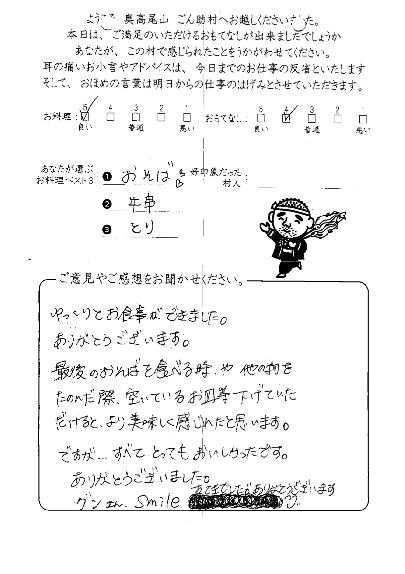 ようこそ 奥高尾山 ごん助村へお越しくださいました。
本日は、ご満足のいただけるおもてなしが出来ましたでしょうか
あなたが、この村で感じられたことをうかがわせてください。
耳の痛いお小言やアドバイスは、今日までのお仕事の反省といたします
そして、おほめの言葉は明日からの仕事のはげみとさせていただきます。
お料理: 5 4 3 2 1 良い 普通 悪い おもてなし: 5 4 3 2 1 良い 普通 悪い
あなたが選ぶ
お料理ベスト3
❶ おそば
❷ 牛串
❸ とり
好印象だった
村人:
ご意見やご感想をお聞かせください。
ゆっくりとお食事ができました。
ありがとうございます。
最後のおそばを食べる時、や 他の物を
たのんだ際、空いているお皿等下げていた
だけると、より美味しく感じれたと思います。
ですが… すべて とっても おいしかったです。
ありがとうございました。
さん、Smile
ありがとうございます